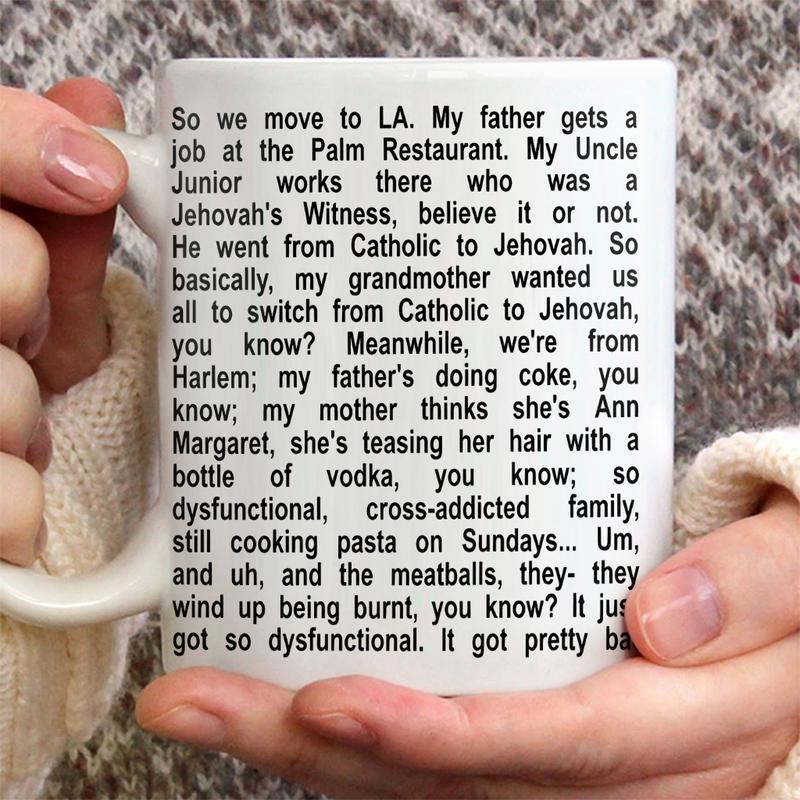 So we move to LA. My father gets a
job at the Palm Restaurant. My Uncle
Junior works there who was a
Jehovah's Witness, believe it or not.
He went from Catholic to Jehovah. So
basically, my grandmother wanted us
all to switch from Catholic to Jehovah,
you know? Meanwhile, we're from
Harlem; my father's doing coke, you
know; my mother thinks she's Ann
Margaret, she's teasing her hair with a
bottle of vodka, you know; so
dysfunctional, cross-addicted family,
still cooking pasta on Sundays... Um,
and uh, and the meatballs, they- they
wind up being burnt, you know? It
got so dysfunctional. It got pretty